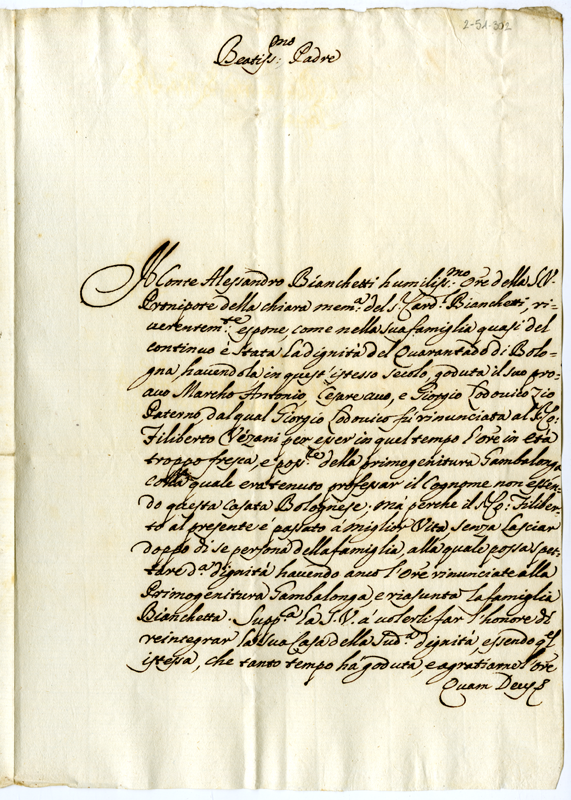 2-51-302
Beatiss:mo Padre
Il Conte Alessandro Bianchetti humiliss:mo Ore della S.V.
Pronipote della chiara mem:a del S. Card:l Bianchetti, ri-
verentem:te espone, come nella sua famiglia quasi del
continuo è stata la dignità del Quarantado di Bolo-
gna, havendola in quest'istesso secolo goduta il suo pro-
avo Marcho Antonio, Cesare avo, e Giorgio Lodovico Zio
Paterno dal qual Giorgio Lodovico fù rinunciata al
Filiberto Vezani per esser in quel tempo l'Ore in età
troppo fresca, e poss:re della primogenitura Gambalonga
colla quale era tenuto professar il Cognome non essen-
do questa casata Bolognese; mà perche il Filiber-
to al presente è passato à miglior Vita senza lasciar
doppo di se persona della famiglia, alla quale possa spet-
tare d:a dignità havendo anco l'Ore rinunciate alla
Primogenitura Gambalonga, e riasunta la famiglia
Bianchetta. Supp:ca la S.V. à volerli far l'honore di
reintegrar la sua Casa della Sud:a dignità, essendo
istessa, che tanto tempo hà goduta, e agratiarne l'Ore
Quam Deus